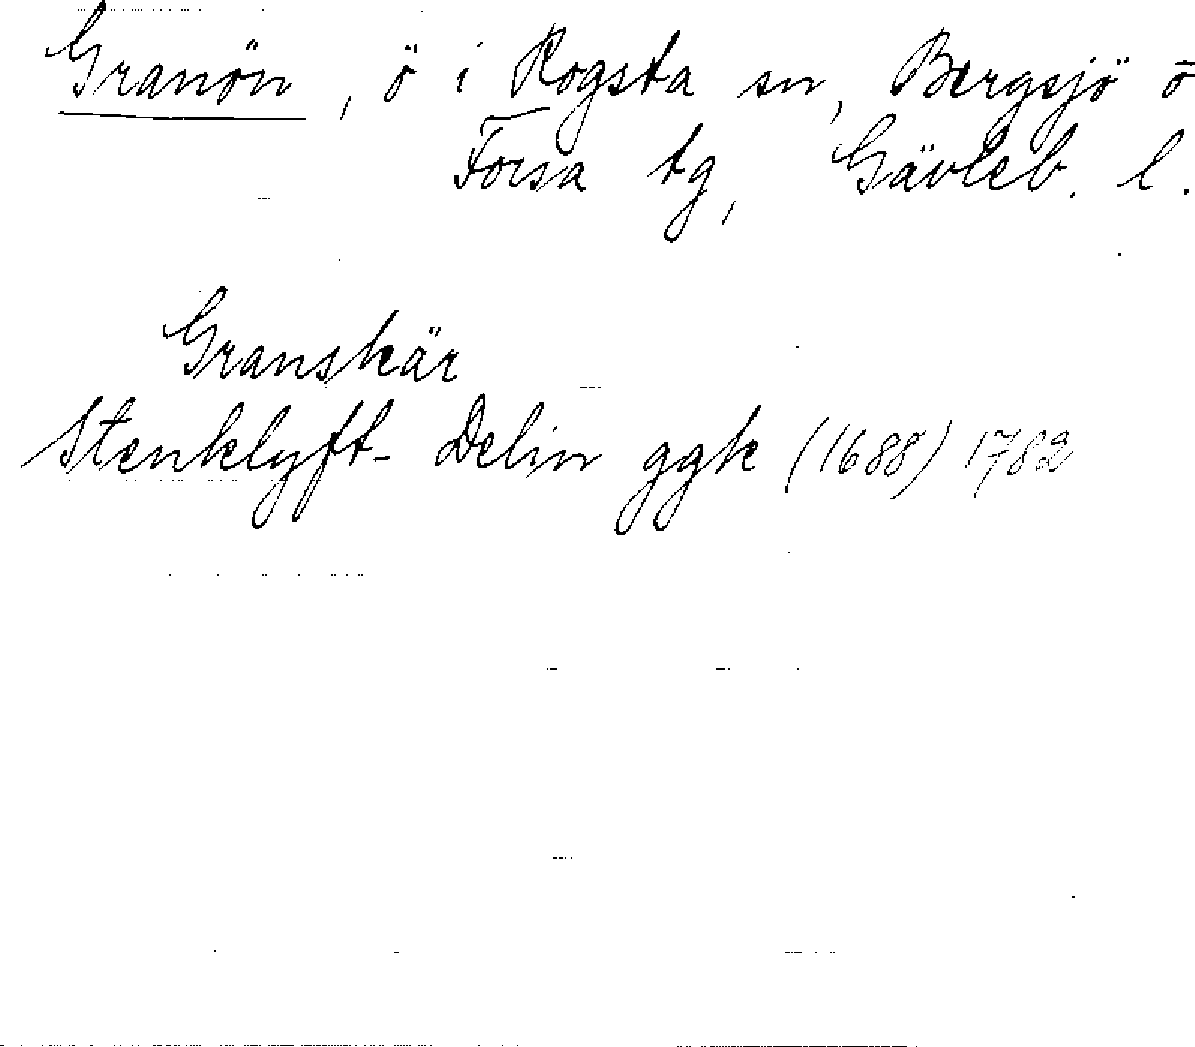 Granön, ö i Rogsta sn, Bergsjö o
Forsa tg, Gävleb. l.
Granskär
Stenklyft-Delin ggk (1688) 1782